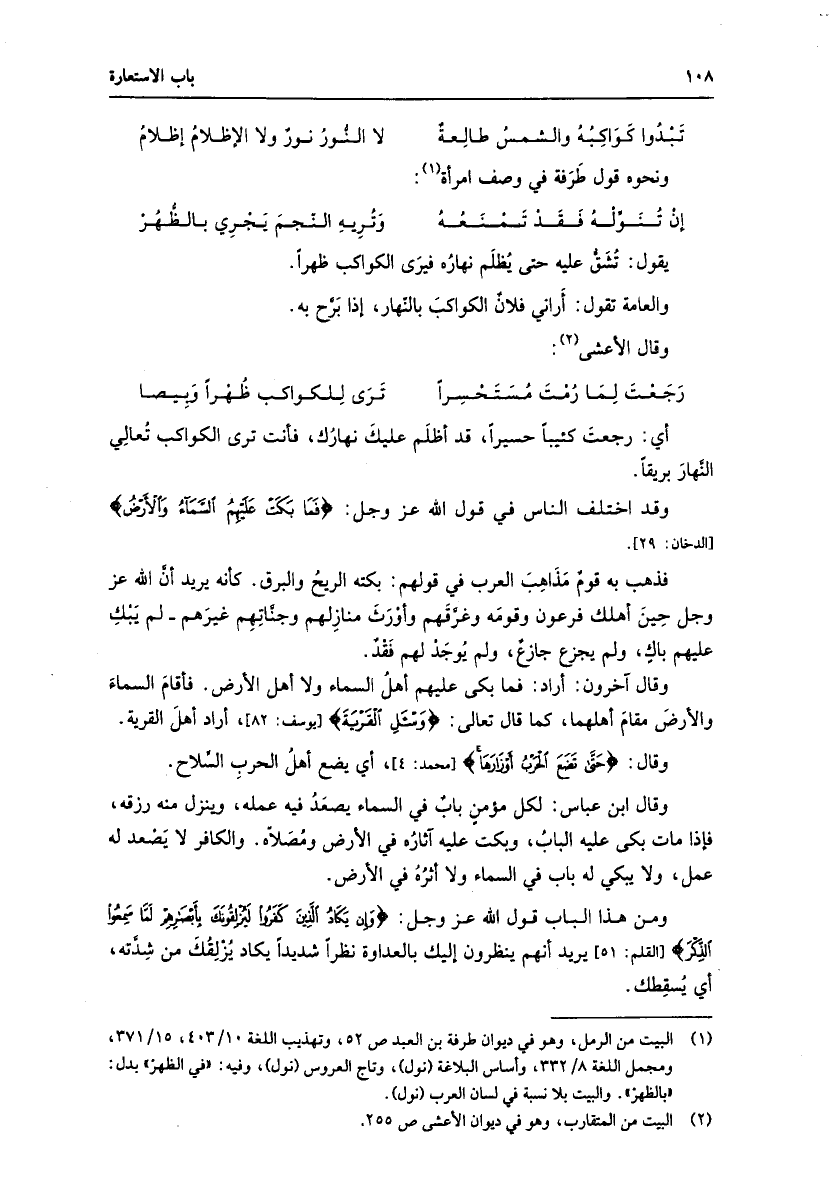 ١٠٨ باب الاستعارة
تَبْدُوا كَوَاكِبُهُ والشمسُ طالِعةٌ لا النُّورُ نورٌ ولا الإظلامُ إظلامُ
ونحوه قول طَرَفة في وصف امرأة(١):
إنْ تُنَوِّلْهُ فَقَدْ تَمْنَعُهُ وَتُرِيهِ النَّجمَ يَجْرِي بالظُّهُرْ
يقول: تُشَقُّ عليه حتى يُظلَم نهارُه فيرَى الكواكب ظهراً.
والعامة تقول: أَراني فلانٌ الكواكبَ بالنّهار، إذا بَرَّح به.
وقال الأعشى(٢):
رَجَعْتَ لِمَا رُمْتَ مُسْتَحْسِراً تَرَى لِلكواكب ظُهْراً وَبِيصا
أي: رجعتَ كئيباً حسيراً، قد أظلَم عليكَ نهارُك، فأنت ترى الكواكب تُعالِي
النَّهارَ بريقاً.
وقد اختلف الناس في قول الله عز وجل: ﴿فَمَا بَكَتْ عَلَيْهِمُ السَّمَآءُ وَٱلْأَرْضُ﴾
[الدخان: ٢٩].
فذهب به قومٌ مَذَاهِبَ العرب في قولهم: بكته الريحُ والبرق. كأنه يريد أنَّ الله عز
وجل حِينَ أهلك فرعون وقومَه وغرَّقَهم وأوْرَثَ منازِلَهم وجنَّاتِهِم غيرَهم ـ لم يَبْكِ
عليهم باكٍ، ولم يجزع جازعٌ، ولم يُوجَدْ لهم فَقْدٌ.
وقال آخرون: أراد: فما بكى عليهم أهلُ السماء ولا أهل الأرض. فأقامَ السماءَ
والأرضَ مقامَ أهلهما، كما قال تعالى: ﴿وَسْئَلِ الْقَرْيَةَ﴾ [يوسف: ٨٢]، أراد أهلَ القرية.
وقال: ﴿حَتَّىٰ تَضَعَ الْحَرْبُ أَوْزَارَهَا ۚ﴾ [محمد: ٤]، أي يضع أهلُ الحربِ السِّلاح.
وقال ابن عباس: لكل مؤمنٍ بابٌ في السماء يصعَدُ فيه عمله، وينزل منه رزقه،
فإذا مات بكى عليه البابُ، وبكت عليه آثارُه في الأرض ومُصَلاّه. والكافر لا يَصْعد له
عمل، ولا يبكي له باب في السماء ولا أثرُهُ في الأرض.
ومن هذا الباب قول الله عز وجل: ﴿وَإِن يَكَادُ الَّذِينَ كَفَرُوا لَيُزْلِقُونَكَ بِأَبْصَٰرِهِمْ لَمَّا سَمِعُوا
ٱلذِّكْرَ﴾ [القلم: ٥١] يريد أنهم ينظرون إليك بالعداوة نظراً شديداً يكاد يُزْلِقُكَ من شِدَّته،
أي يُسقِطك.
(١) البيت من الرمل، وهو في ديوان طرفة بن العبد ص ٥٢، وتهذيب اللغة ٤٠٣/١٠، ٣٧١/١٥،
ومجمل اللغة ٣٣٢/٨، وأساس البلاغة (نول)، وتاج العروس (نول)، وفيه: «في الظهرْ» بدل:
«بالظهرْ». والبيت بلا نسبة في لسان العرب (نول).
(٢) البيت من المتقارب، وهو في ديوان الأعشى ص ٢٥٥.